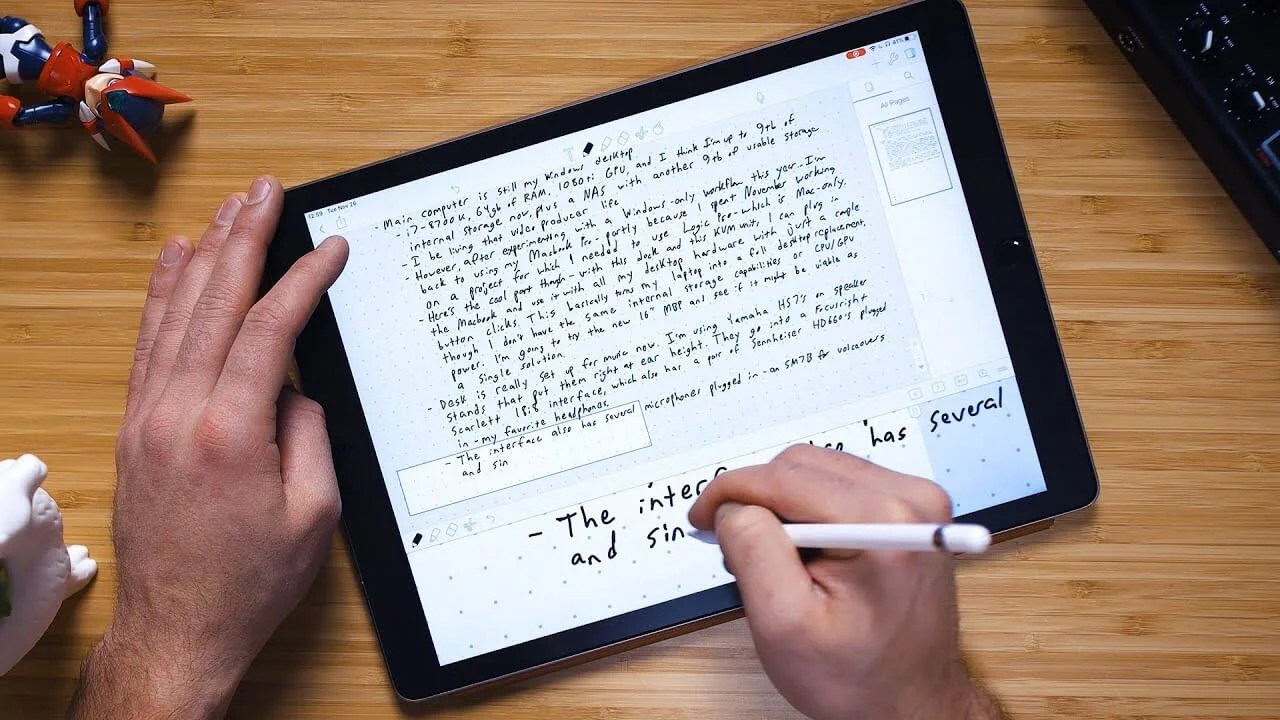 12:59 Tue Nov 26
41%
All Pages
desktop
- Main computer is still my Windows
i7-8700K, 64gb of RAM, 1080ti GPU, and I think I'm up to 9tb of
internal storage now, plus a NAS with another 9tb of usable storage
- I be living that video producer life
- However, after experimenting with a Windows-only workflow this year. I'm
back to using my Macbook Pro, partly because I spent November working
on a project for which I needed to use Logic Pro - which is Mac-only.
- Here's the cool part though - with this dock and this KVM unit, I can plug in
the Macbook and use it with all my desktop hardware with just a couple
button clicks. This basically turns my laptop into a full desktop replacement,
though I don't have the same internal storage capabilities or CPU/GPU
power. I'm going to try the new 16" MBP and see if it might be viable as
a single solution.
- Desk is really set up for music now. I'm using Yamaha HS7's on speaker
stands that put them right at ear height. They go into a Focusright
Scarlett 18i8 interface, which also has a pair of Sennheiser HD660's plugged
in - my favorite headphones.
- The interface also has several microphones plugged in - an SM7B for voiceovers
and sin
- The inter has several
and sin